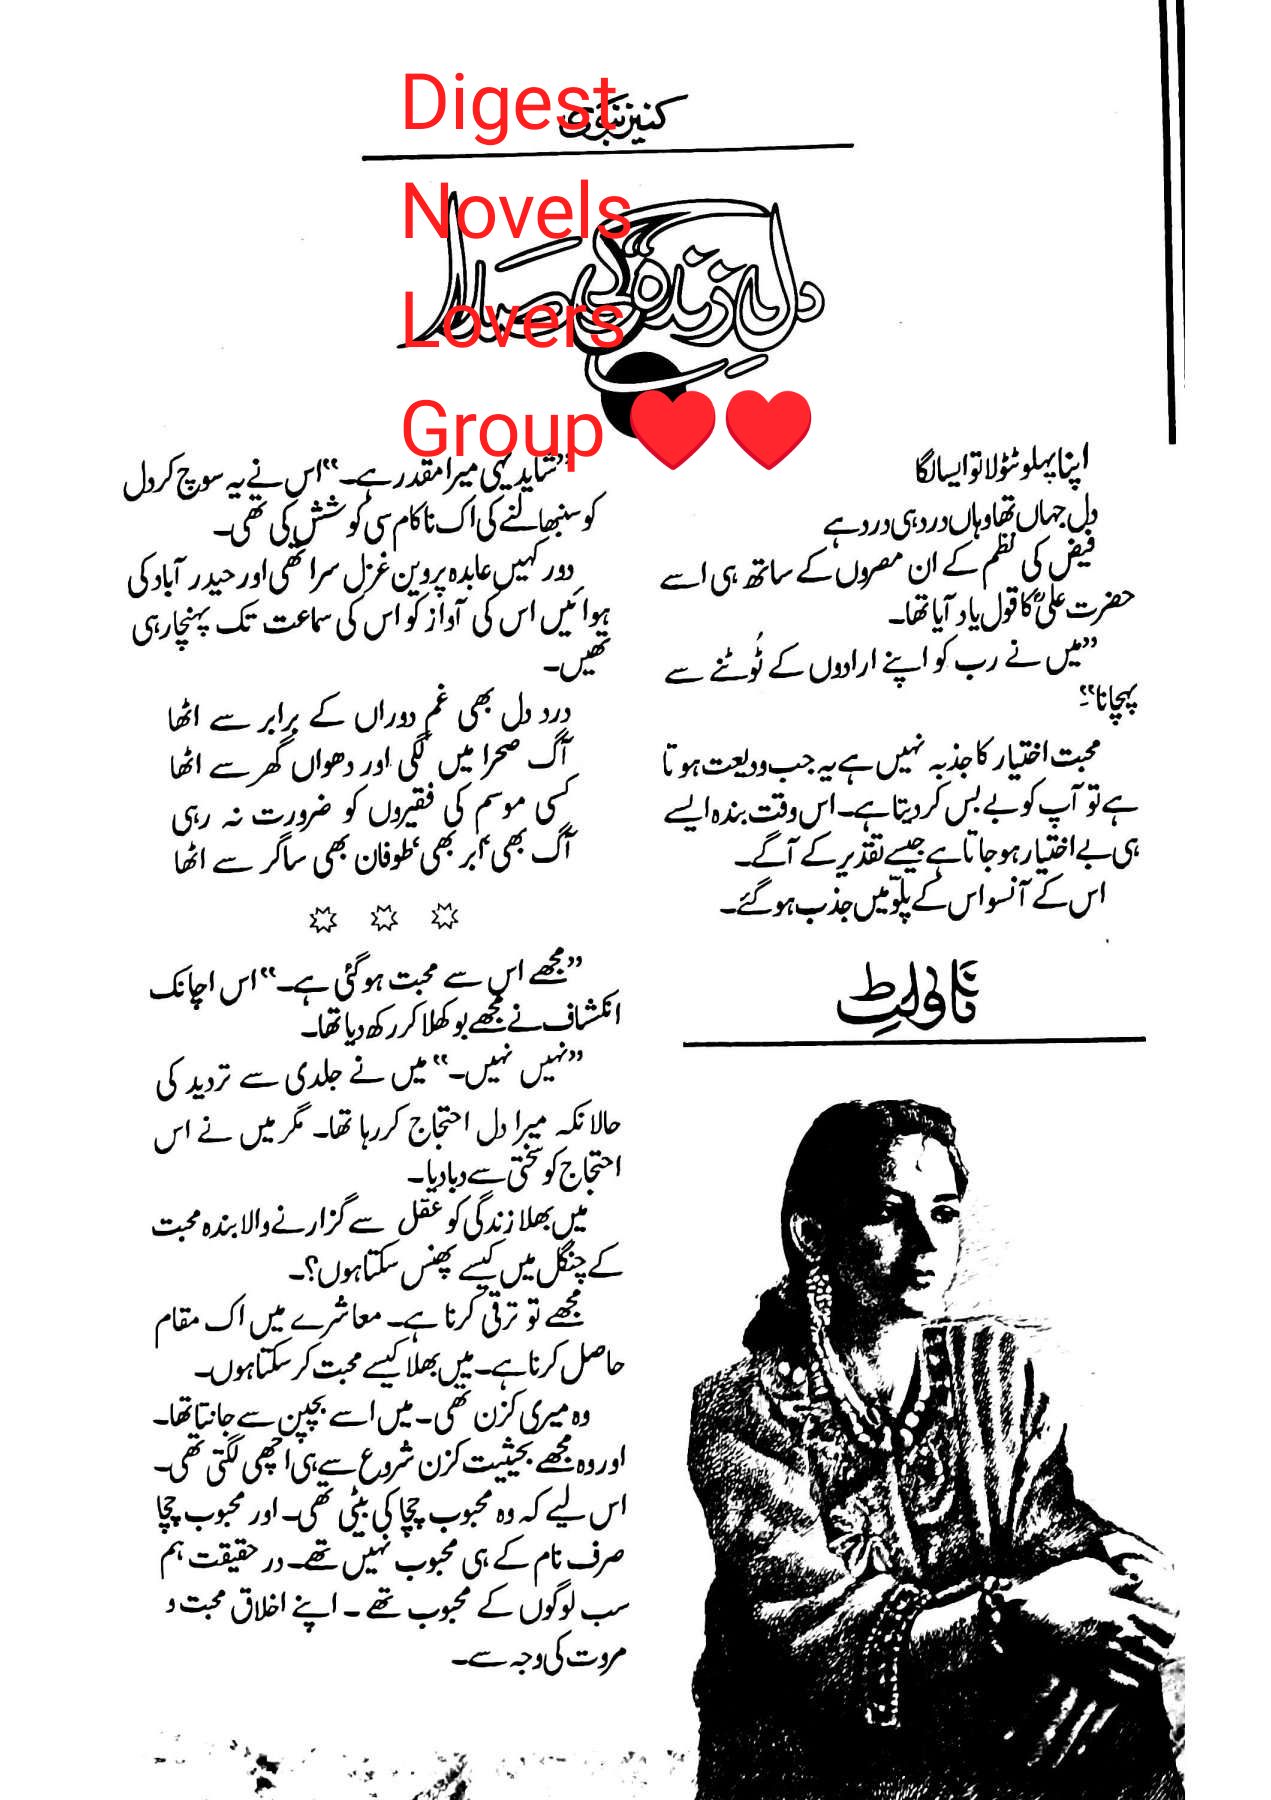 Digest
Novels
Lovers
Group ❤❤
کنیز نبوی
دل زندہ کی صدا
اپنا پہلو ٹٹولا تو ایسا لگا
دل جہاں تھا وہاں درد ہی درد ہے
فیض کی نظم کے ان مصروں کے ساتھ ہی اسے
حضرت علیؓ کا قول یاد آیا تھا۔
”میں نے رب کو اپنے ارادوں کے ٹُوٹنے سے
پہچانا“۔
محبت اختیار کا جذبہ نہیں ہے یہ جب ودیعت ہوتا
ہے تو آپ کو بے بس کردیتا ہے۔ اس وقت بندہ ایسے
ہی بے اختیار ہوجاتا ہے جیسے تقدیر کے آگے۔
اس کے آنسو اس کے پلّو میں جذب ہوگئے۔
ناولٹ
”شاید یہی میرا مقدر ہے۔“ اس نے یہ سوچ کر دل
کو سنبھالنے کی اک ناکام سی کوشش کی تھی۔
دور کہیں عابدہ پروین غزل سرا تھی اور حیدر آباد کی
ہوائیں اس کی آواز کو اس کی سماعت تک پہنچارہی
تھیں۔
درد دل بھی غم دوراں کے برابر سے اٹھا
آگ صحرا میں لگی اور دھواں گھر سے اٹھا
کسی موسم کی فقیروں کو ضرورت نہ رہی
آگ بھی‘ ابر بھی‘ طوفان بھی ساگر سے اٹھا
”مجھے اس سے محبت ہوگئی ہے۔“ اس اچانک
انکشاف نے مجھے بوکھلا کر رکھ دیا تھا۔
”نہیں نہیں۔“ میں نے جلدی سے تردید کی
حالانکہ میرا دل احتجاج کررہا تھا۔ مگر میں نے اس
احتجاج کو سختی سے دبا دیا۔
میں بھلا زندگی کو عقل سے گزارنے والا بندہ محبت
کے چنگل میں کیسے پھنس سکتا ہوں؟۔
مجھے تو ترقی کرنا ہے۔ معاشرے میں اک مقام
حاصل کرنا ہے۔ میں بھلا کیسے محبت کرسکتا ہوں۔
وہ میری کزن تھی۔ میں اسے بچپن سے جانتا تھا۔
اور وہ مجھے بحیثیت کزن شروع سے ہی اچھی لگتی تھی۔
اس لیے کہ وہ محبوب چچا کی بیٹی تھی۔ اور محبوب چچا
صرف نام کے ہی محبوب نہیں تھے۔ در حقیقت ہم
سب لوگوں کے محبوب تھے۔ اپنے اخلاق محبت و
مروت کی وجہ سے۔